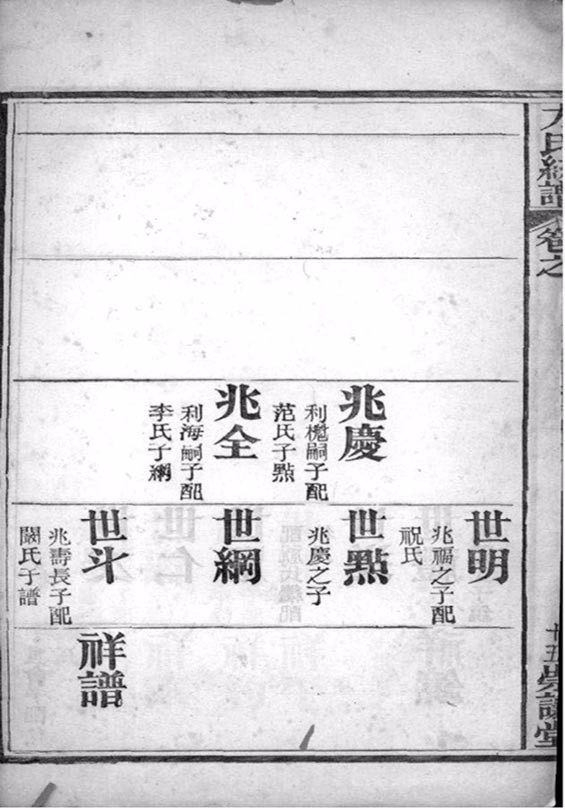 卷之
十五
兆慶
利櫆嗣子配
范氏子點
兆全
利海嗣子配
李氏子綱
世明
兆福之子配
祝氏
世點
兆慶之子
世綱
世斗
兆壽長子配
氏子譜
祥譜